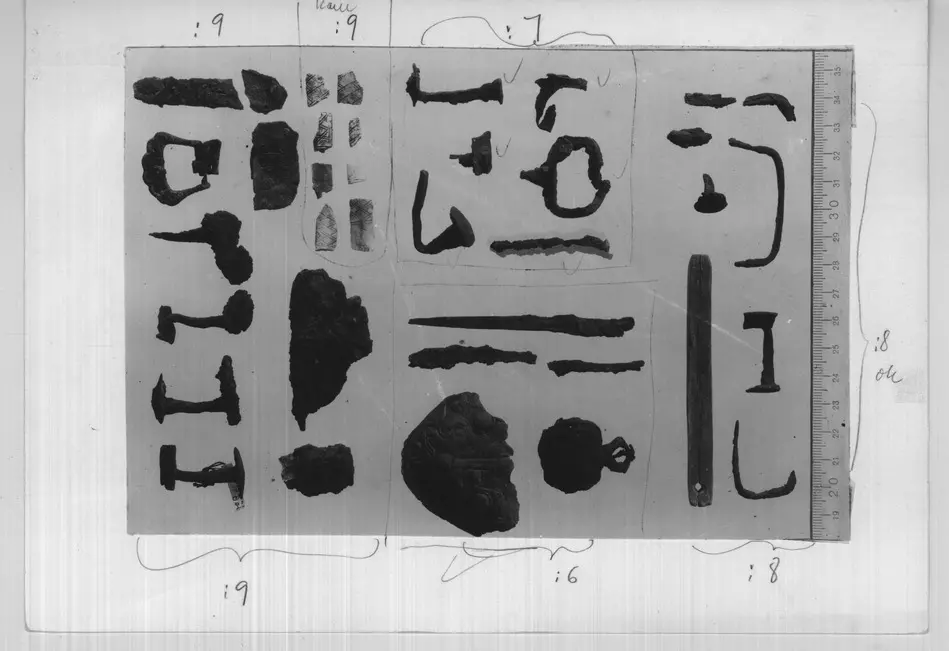 :9
:9
:7
:8
ok
35
34
33
32
31
30
29
28
27
26
25
24
23
22
21
20
19
:9
:6
:8